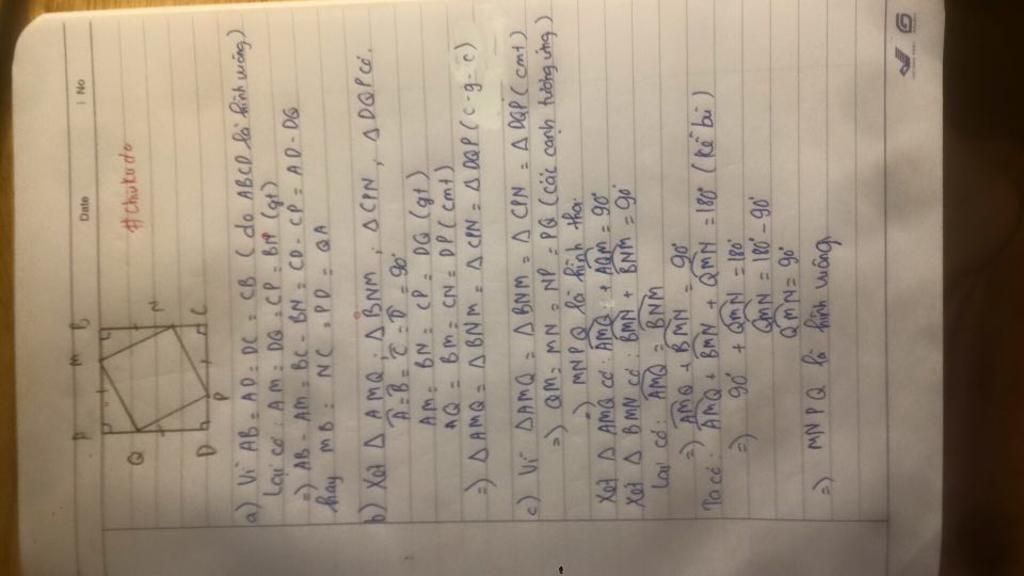 Date
No
#Chuotcdo
A M B
Q N
D P C
a) Vì AB = AD = DC = CB (do ABCD là hình vuông)
Lại có: AM = DQ = CP = BN (gt)
=) AB - AM = BC - BN = CD - CP = AD - DQ
hay MB = NC = PD = QA
b) Xét Δ AMQ; Δ BNM; Δ CPN, Δ DQP có.
A = B = C = D = 90°
AM = BN = CP = DQ (gt)
AQ = BM = CN = DP (cmt)
=) Δ AMQ = Δ BNM = Δ CPN = Δ DQP (c-g-c)
c) Vì Δ AMQ = Δ BNM = Δ CPN = Δ DQP (cmt)
=) QM = MN = NP = PQ (các cạnh tương ứng)
=) MNPQ là hình thoi
Xét Δ AMQ có: AMQ + AQM = 90°
Xét Δ BMN có: BMN + BNM = 90°
Lại có: AMQ = BNM
=) AMQ + BMN = 90°
Ta có: AMQ + BMN + QMN = 180° (kề bù)
=) 90° + QMN = 180°
QMN = 180° - 90°
QMN = 90°
=) MNPQ là hình vuông